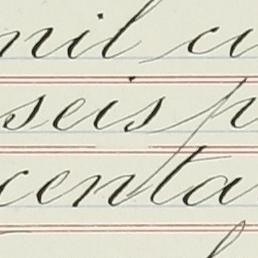 mil ci
seis p
centa